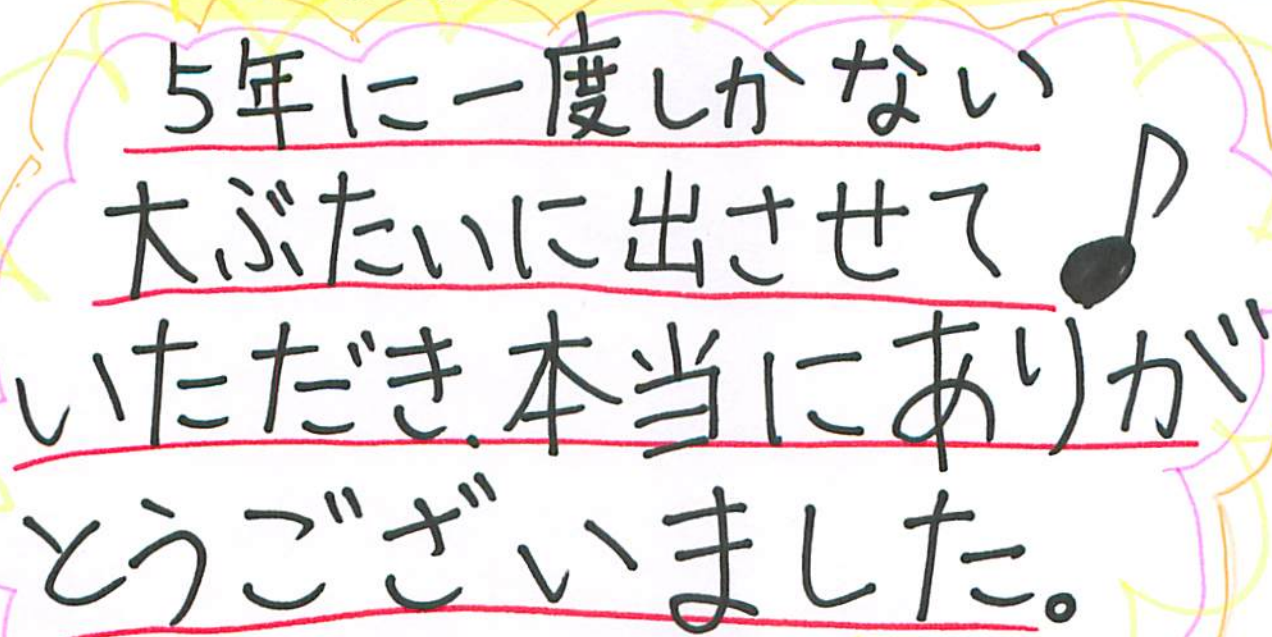 5年に一度しかない
大ぶたいに出させて
いただき、本当にありが
とうございました。